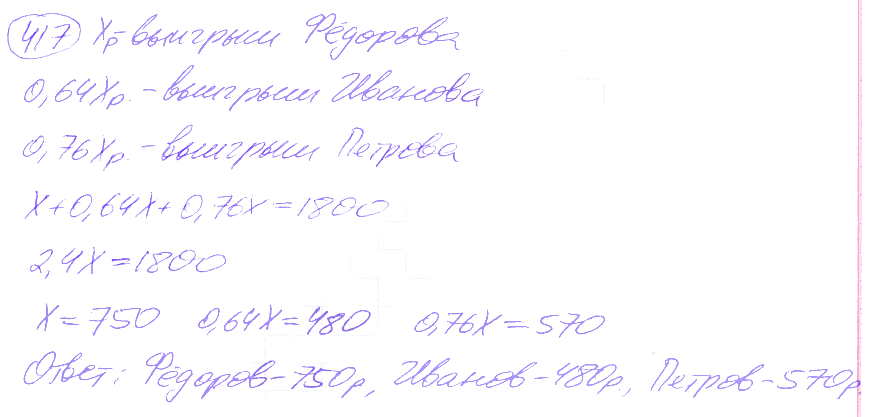 417 Xр - выигрыш Фёдорова
0,64Xр. - выигрыш Иванова
0,76Xр. - выигрыш Петрова
X+0,64X+0,76X=1800
2,4X=1800
X=750 0,64X=480 0,76X=570
Ответ: Фёдоров-750р, Иванов-480р., Петров-570р